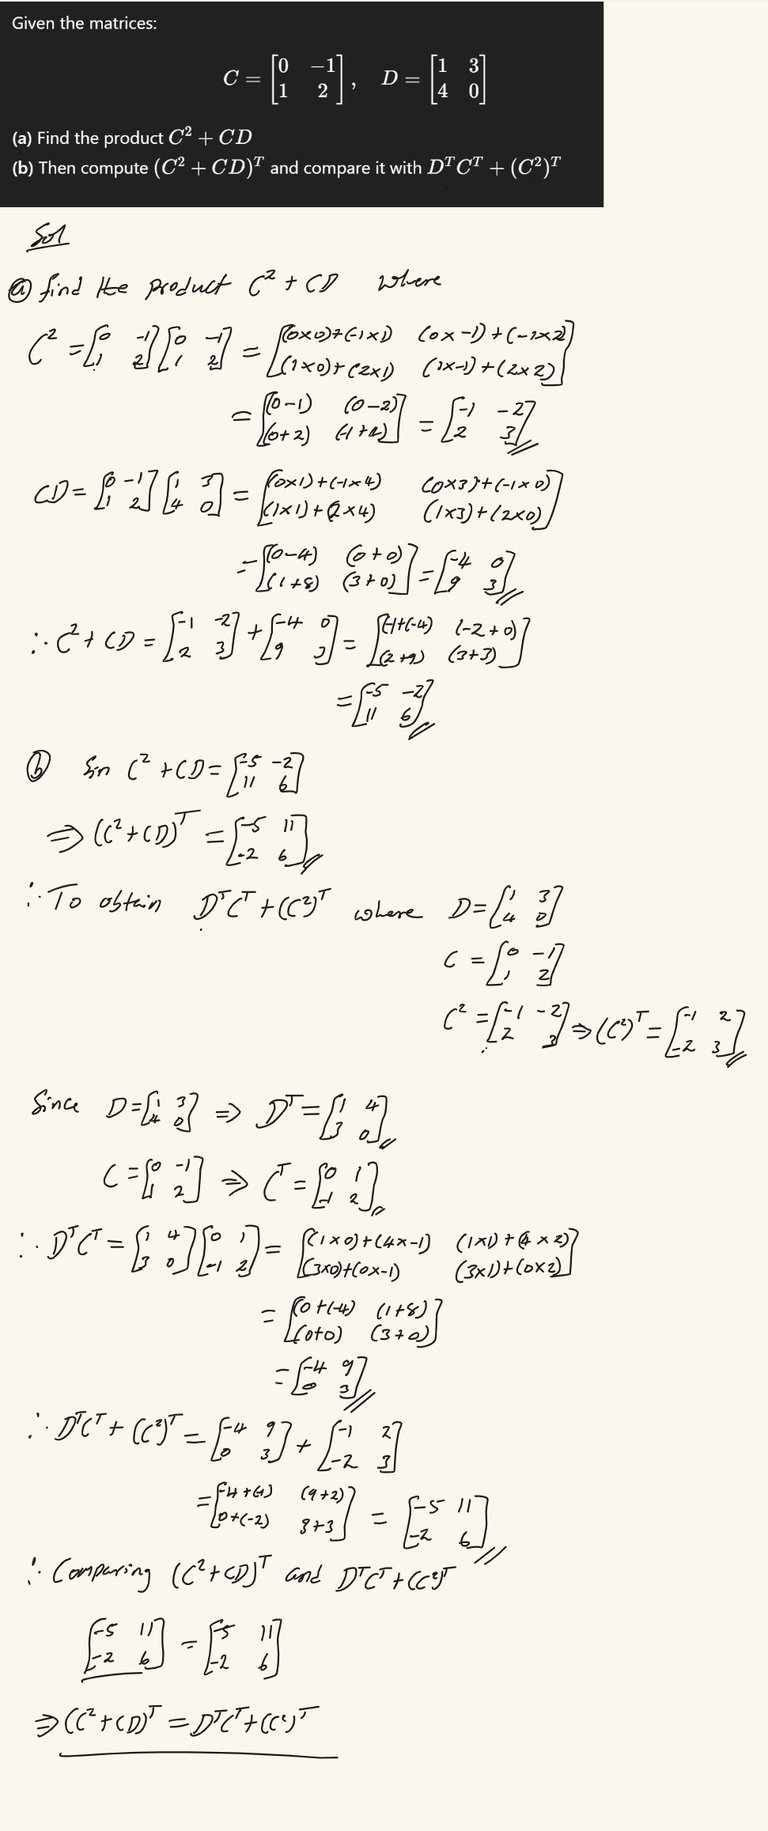 Given the matrices:
C = [0 −1; 1 2], D = [1 3; 4 0]
(a) Find the product C² + CD
(b) Then compute (C² + CD)ᵀ and compare it with DᵀCᵀ + (C²)ᵀ
Sol
ⓐ find the product C² + CD where
C² = [0 -1; 1 2][0 -1; 1 2] = [(0×0)+(-1×1) (0×-1)+(-1×2); (1×0)+(2×1) (1×-1)+(2×2)]
= [(0-1) (0-2); (0+2) (-1+4)] = [-1 -2; 2 3]
CD = [0 -1; 1 2][1 3; 4 0] = [(0×1)+(-1×4) (0×3)+(-1×0); (1×1)+(2×4) (1×3)+(2×0)]
= [(0-4) (0+0); (1+8) (3+0)] = [-4 0; 9 3]
∴ C² + CD = [-1 -2; 2 3] + [-4 0; 9 3] = [-1+(-4) (-2+0); (2+9) (3+3)]
= [-5 -2; 11 6]
ⓑ Sin C² + CD = [-5 -2; 11 6]
⇒ (C² + CD)ᵀ = [-5 11; -2 6]
∴ To obtain DᵀCᵀ + (C²)ᵀ where D = [1 3; 4 0]
C = [0 -1; 1 2]
C² = [-1 -2; 2 3] ⇒ (C²)ᵀ = [-1 2; -2 3]
Since D = [1 3; 4 0] ⇒ Dᵀ = [1 4; 3 0]
C = [0 -1; 1 2] ⇒ Cᵀ = [0 1; -1 2]
∴ DᵀCᵀ = [1 4; 3 0][0 1; -1 2] = [(1×0)+(4×-1) (1×1)+(4×2); (3×0)+(0×-1) (3×1)+(0×2)]
= [0+(-4) (1+8); (0+0) (3+0)]
= [-4 9; 0 3]
∴ DᵀCᵀ + (C²)ᵀ = [-4 9; 0 3] + [-1 2; -2 3]
= [-4+(-1) (9+2); 0+(-2) 3+3] = [-5 11; -2 6]
∴ Comparing (C² + CD)ᵀ and DᵀCᵀ + (C²)ᵀ
[-5 11; -2 6] = [-5 11; -2 6]
⇒ (C² + CD)ᵀ = DᵀCᵀ + (C²)ᵀ